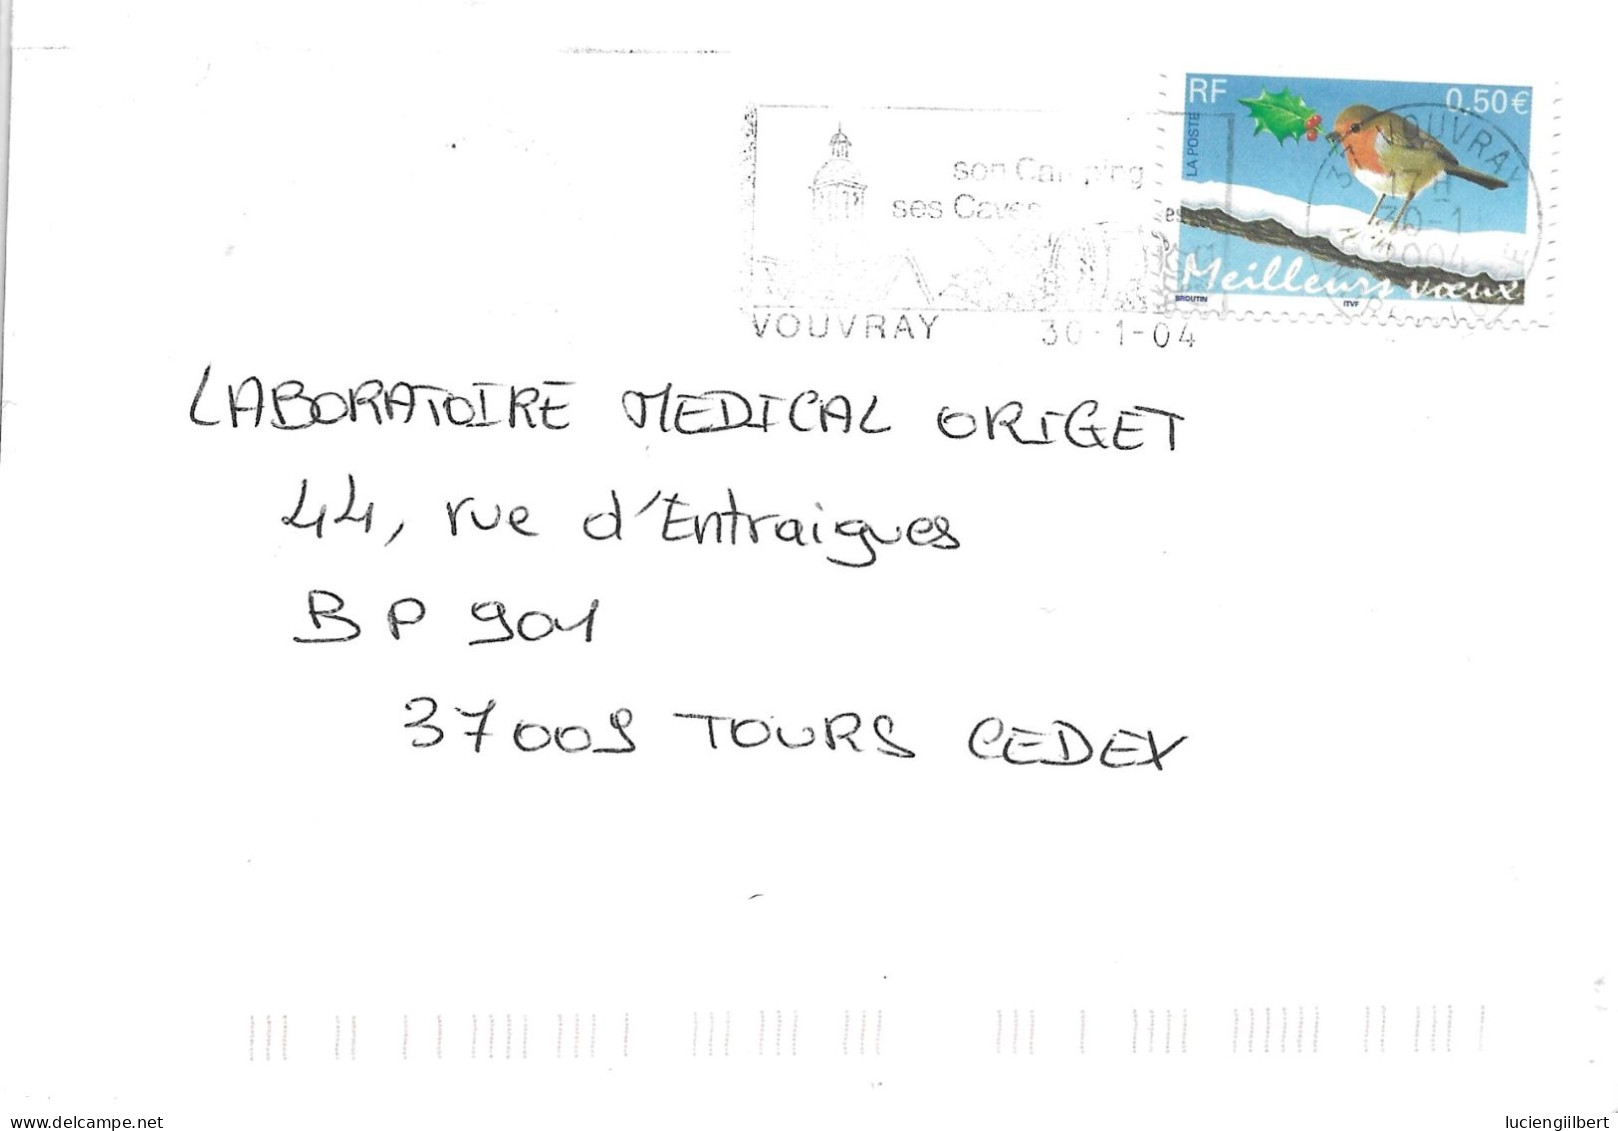 RF
0.50€
LA POSTE
Meilleurs vœux
BROUTIN
ITVF
son Camping
ses Caves
VOUVRAY
17 H
30-1
2004
VOUVRAY 30-1-04
LABORATOIRE MEDICAL ORIGET
44, rue d'Entraigues
BP 901
37009 TOURS CEDEX
delcampe.net
luciengilbert